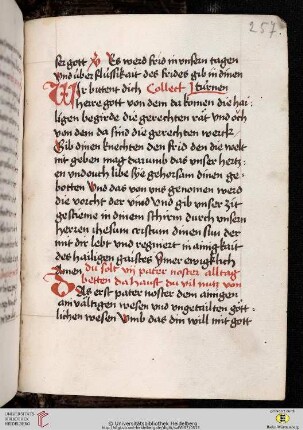 257
ser gott Es werd frid in unsern tagen
und über flüssikait des frides gib in dinen
Wir butent dich Collect türnen
herre gott von dem da komen die hai
ligen begirde die gerechten rät und och
von dem da sind die gerechten werck
Gib dinen knechten den frid den die welt
nit geben mag darumb das unser hertz
en und ouch libe sÿe gehorsam dinen ge
botten Und das von uns genomen werd
die vorcht der vind Und gib unser zit
gestieme in dinem schirm durch unsern
herren ihesum cristum dinen sun der
mit dir lebt und regniert in ainigkait
des hailigen gaistes Jmer ewigklich
Amen du solt vij pater noster alltag
betten da haust du vil nutz von
Das erst pater noster dem ainigen
an valtigen wesen und ungetailten gött
lichen wesen Umb das din will mit gott
UNIVERSITÄTS-
BIBLIOTHEK
HEIDELBERG
© Universitätsbibliothek Heidelberg